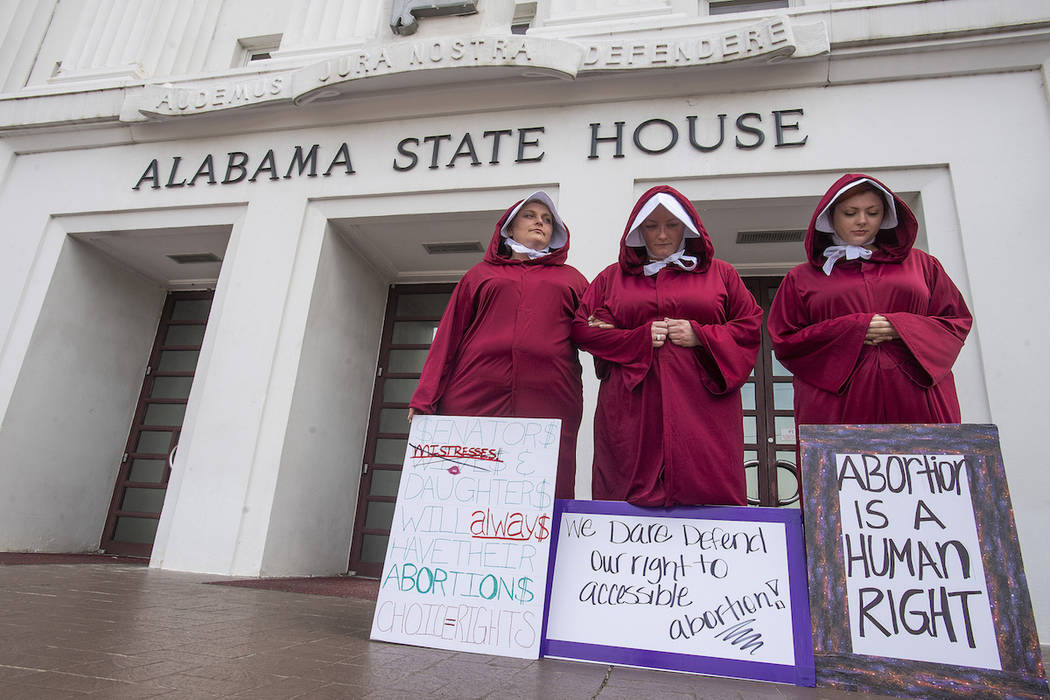 AUDEMUS JURA NOSTRA DEFENDERE
ALABAMA STATE HOUSE
$ENATOR$
MISTRESSES &
DAUGHTER$
WILL alway$
HAVE THEIR
ABORTION$
CHOICE=RIGHTS
We Dare Defend
Our right to
accessible
abortion!
ABORTION
IS A
HUMAN
RIGHT